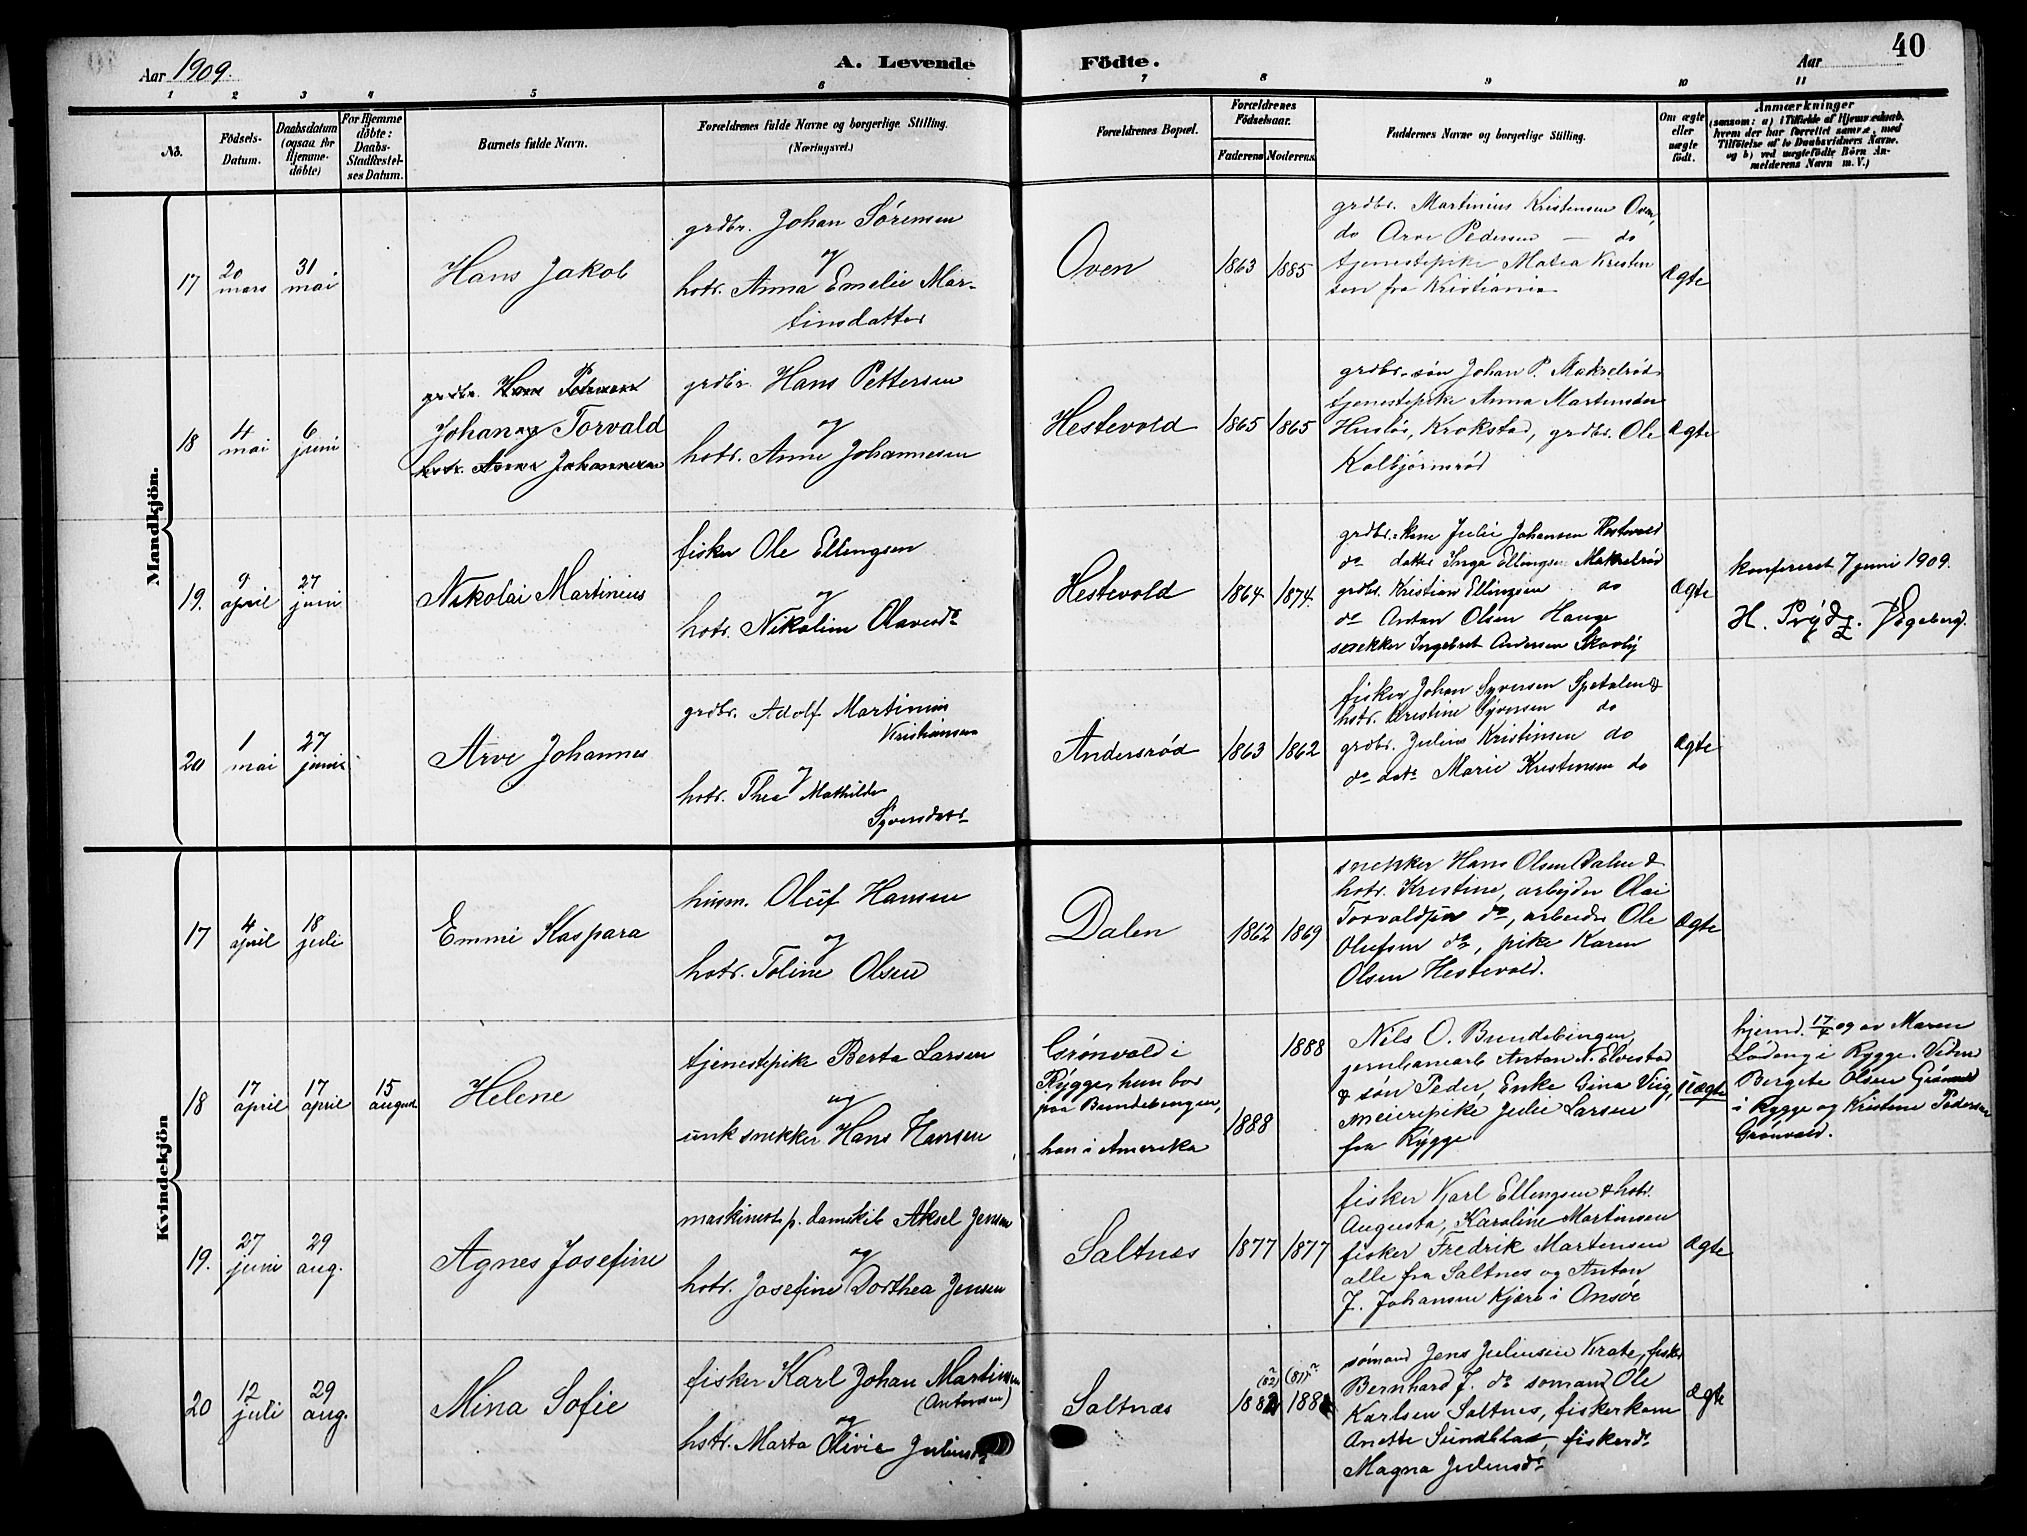 Aar 1909.
A. Levende
Födte.
Aar
40
1 2 3 4 5 6 7 8 9 10 11
No.
Födsels-
Datum.
Daabsdatum
(ogsaa for
Hjemme-
døbte)
For Hjemme
døbte:
Daabs-
Stadfæstel-
ses Datum.
Barnets fulde Navn.
Forældrenes fulde Navne og borgerlige Stilling.
(Næringsvei.)
Forældrenes Bopæl.
Forældrenes
Födselsaar.
Faderens
Moderens
Faddernes Navne og borgerlige Stilling.
Om ægte
eller
uægte
födt.
Anmærkninger
(saasom: a) i Tilfælde af Hjemmedaab,
hvem der har forrettet samme, med
Tilföielse af to Daabsvidners Navne,
og b) ved uægtefödte Börn An-
melderens Navn m. V.)
Mandkjön.
17
20
mars
31
mai
Hans Jakob
grdbr. Johan Sörensen
og
hotr. Anna Emelie Mar-
tinsdatter
Oven
1863
1885
grdbr. Martinius Kristensen Oven,
do Arve Pedersen — do
tjenestepike Matea Kristen
sen fra Kristiania
ægte
18
4
mai
6
juni
grdbr. Hans Petersen
Johan og Torvald
hotr. Anne Johannesen
grdbr. Hans Pettersen
og
hotr. Anne Johannesen
Hestevold
1865
1865
grdbr. søn Johan P. Makrelröd
tjenestepike Anna Martensder
Huslös, Krokstad, grdbr. Ole
Kolbjörnsröd
ægte
19.
9
april
27
juni
Nikolai Martinius
fisker Ole Ellingsen
og
hotr. Nikoline Olavsdr
Hestevold
1864
1874.
grdbr. kone Julie Johansen Hestevold
do datter Inga Ellingsen Makrelröd
grdbr. Kristian Ellingsen do
do Anton Olsen Hauge
snekker Ingebret Andersen Skovby
ægte
konfereret 7 juni 1909.
H. Prydz.
20
1
mai
27
juni
Arve Johannes
grdbr. Adolf Martinius
Kristiansen
og
hotr. Thea Mathilde
Syversdatr
Andersröd
1863
1862
fisker Johan Syversen Spetalen &
hstr. Kristine Syversen do
grdbr. Julius Kristinsen do
do datr Marie Kristensen do
ægte
Kvindekjön
17
4
april
18
juli
Emmi Kaspara
husm. Oluf Hansen
og
hotr. Toline Olsen
Dalen
1862
1869
snekker Hans Olsen Dalen &
hotr. Kristine, arbejder Olai
Torvaldsen do, arbeider Ole
Olufsen do, pike Karen
Olsen Hestevold.
ægte
18
17
april
17
april
15
august
Helene
tjenestepike Berta Larsen
og
unk snekker Hans Hansen
Grönvold i
Rygge, hun bor
paa Bundebingen,
han i Amerika
1888
1888
Nils O. Bundebingen,
jernbanearb Anton N. Elvestad
& søn Peder, Enke Gina Viig,
meieripike Julie Larsen
fra Rygge
uægte
hjemd. 17/4 09 av Maren
Lödeng i Rygge. Vidner
Bergete Olsen Grönvold
i Rygge og Kristine Pedersen
Grönvold.
19.
27
juni
29
aug.
Agnes Josefine
maskinist p. damskib Aksel Jensen
og
hotr. Josefine Dorthea Jensen
Saltnes
1877
1877
fisker Karl Ellingsen & hotr.
Augusta, Karoline Martinsen
fisker Fredrik Martensen
alle fra Saltnes og Anton
J. Johansen Kjære i Onsöe
ægte
20
12
juli
29
aug.
Mina Sofie
fisker Karl Johan Martinsen
(Antonsen)
og
hstr. Marta Olivie Juliusdr
Saltnæs
(82)
188
(81)
188
sömand Jens Juliussen Krate, fisker
Bernhard J. do somand Ole
Karlsen Saltnes, fiskerkone
Anette Sundblad, fiskerdr
Magna Juliusdr
ægte